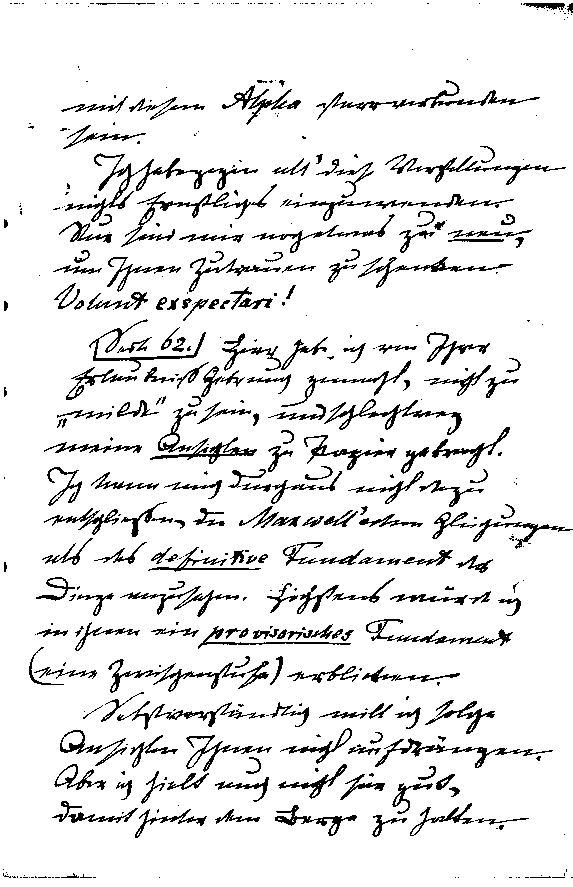 mit diesem Alpha starr verbunden
sein.
Ich habe gegen all' diese Vorstellungen
nichts Ernstliches einzuwenden.
Nur sind mir noch etwas zu neu,
um Ihnen Zutrauen zu schenken.
Volunt exspectari!
[Seite 62.] Hier habe ich von Ihrer
Erlaubniss Gebrauch gemacht, nicht zu
„milde" zu sein, und schlechtweg
meine Ansichten zu Papier gebracht.
Ich kann mich durchaus nicht dazu
entschliessen, die Maxwell'schen Gleichungen
als das definitive Fundament der
Dinge anzusehen. Höchstens würde ich
in ihnen ein provisorisches Fundament
(eine Zwischenstufe) erblicken.
Selbstverständlich will ich solche
Ansichten Ihnen nicht aufdrängen.
Aber ich hielt auch nicht für gut,
damit hinter dem Berge zu halten.